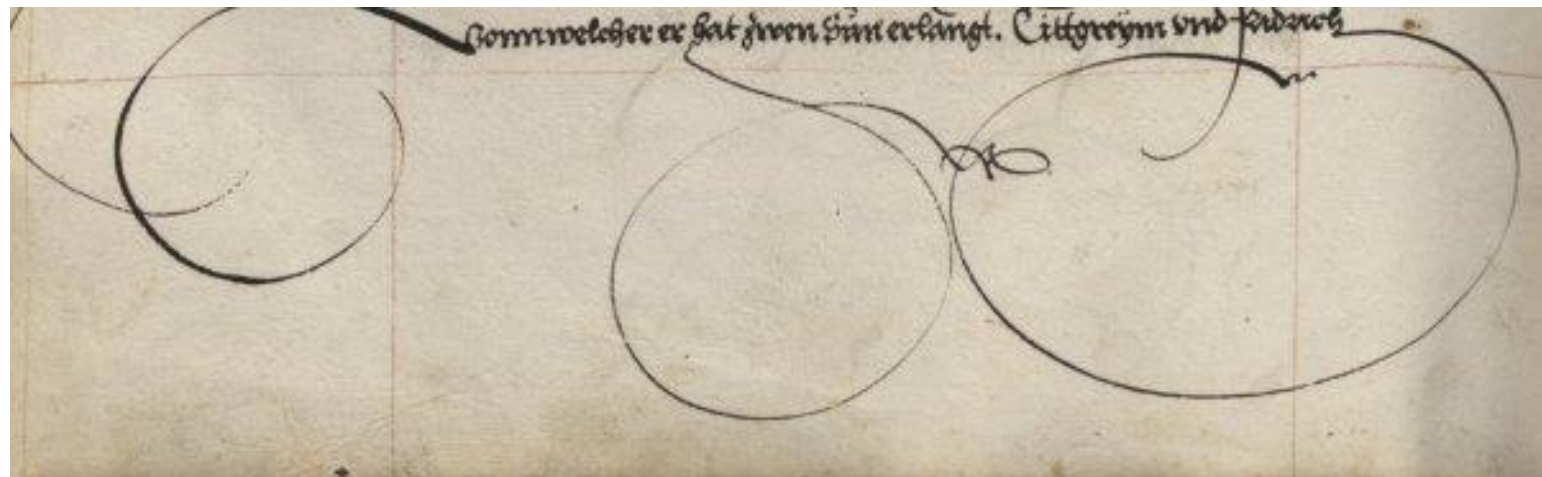 vonn welcher er hat zwen Sün erlanngt. Dittgreym vnd Fridrich